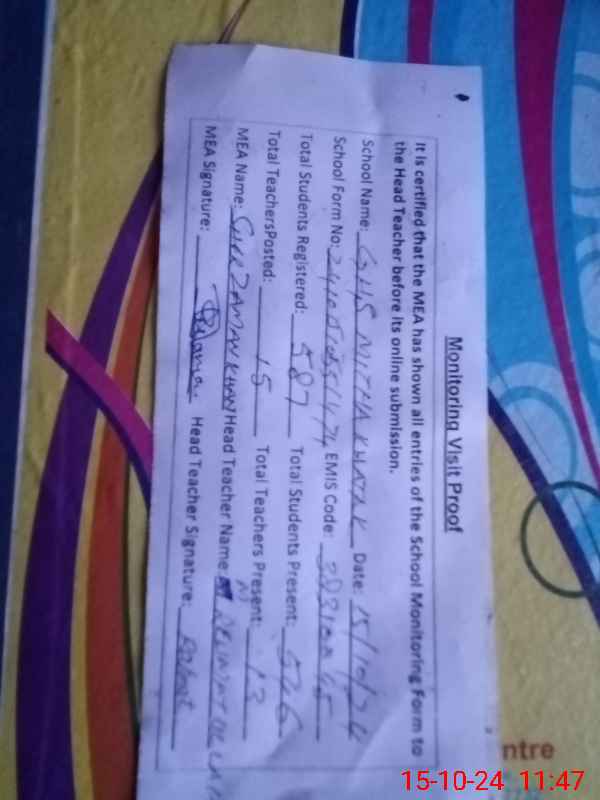 Monitoring Visit Proof
It is certified that the MEA has shown all entries of the School Monitoring Form to
the Head Teacher before its online submission.
School Name: GHS MITHA KHATAK Date: 15/10/24
School Form No: EMIS Code:
Total Students Registered: 587 Total Students Present: 546
Total TeachersPosted: 15 Total Teachers Present: 13
MEA Name: GUL ZAMAN KHAN Head Teacher Name:
MEA Signature: Head Teacher Signature:
ntre
15-10-24 11:47